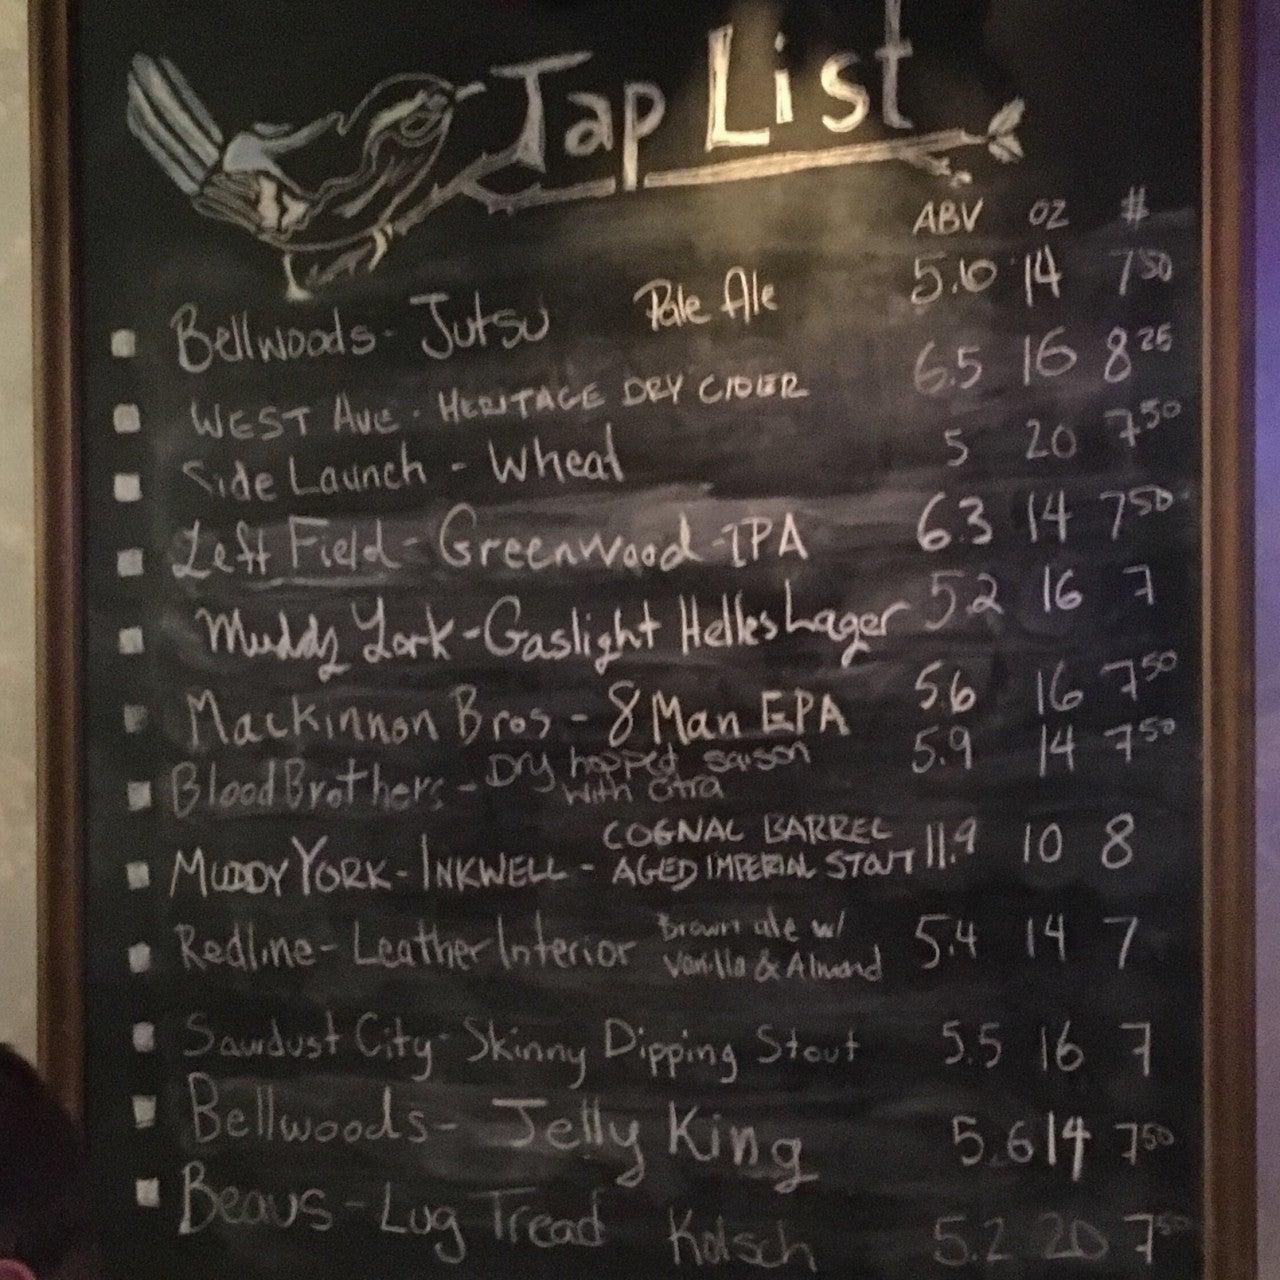 Tap List
ABV OZ #
Bellwoods - Jutsu Pale Ale 5.6 14 7 50
WEST AVE - HERITAGE DRY CIDER 6.5 16 8 25
Side Launch - Wheat 5 20 7 50
Left Field - Greenwood - IPA 6.3 14 7 50
Muddy York - Gaslight Helles Lager 5.2 16 7
Mackinnon Bros - 8 Man EPA 5.6 16 7 50
Blood Brothers - Dry hopped saison 5.9 14 7 50
with citra
COGNAC BARREL
MUDDY YORK - INKWELL - AGED IMPERIAL STOUT 11.9 10 8
Redline - Leather Interior Brown ale w/ 5.4 14 7
Vanilla & Almond
Sawdust City - Skinny Dipping Stout 5.5 16 7
Bellwoods - Jelly King 5.6 14 7 50
Beaus - Lug Tread Kolsch 5.2 20 7 50